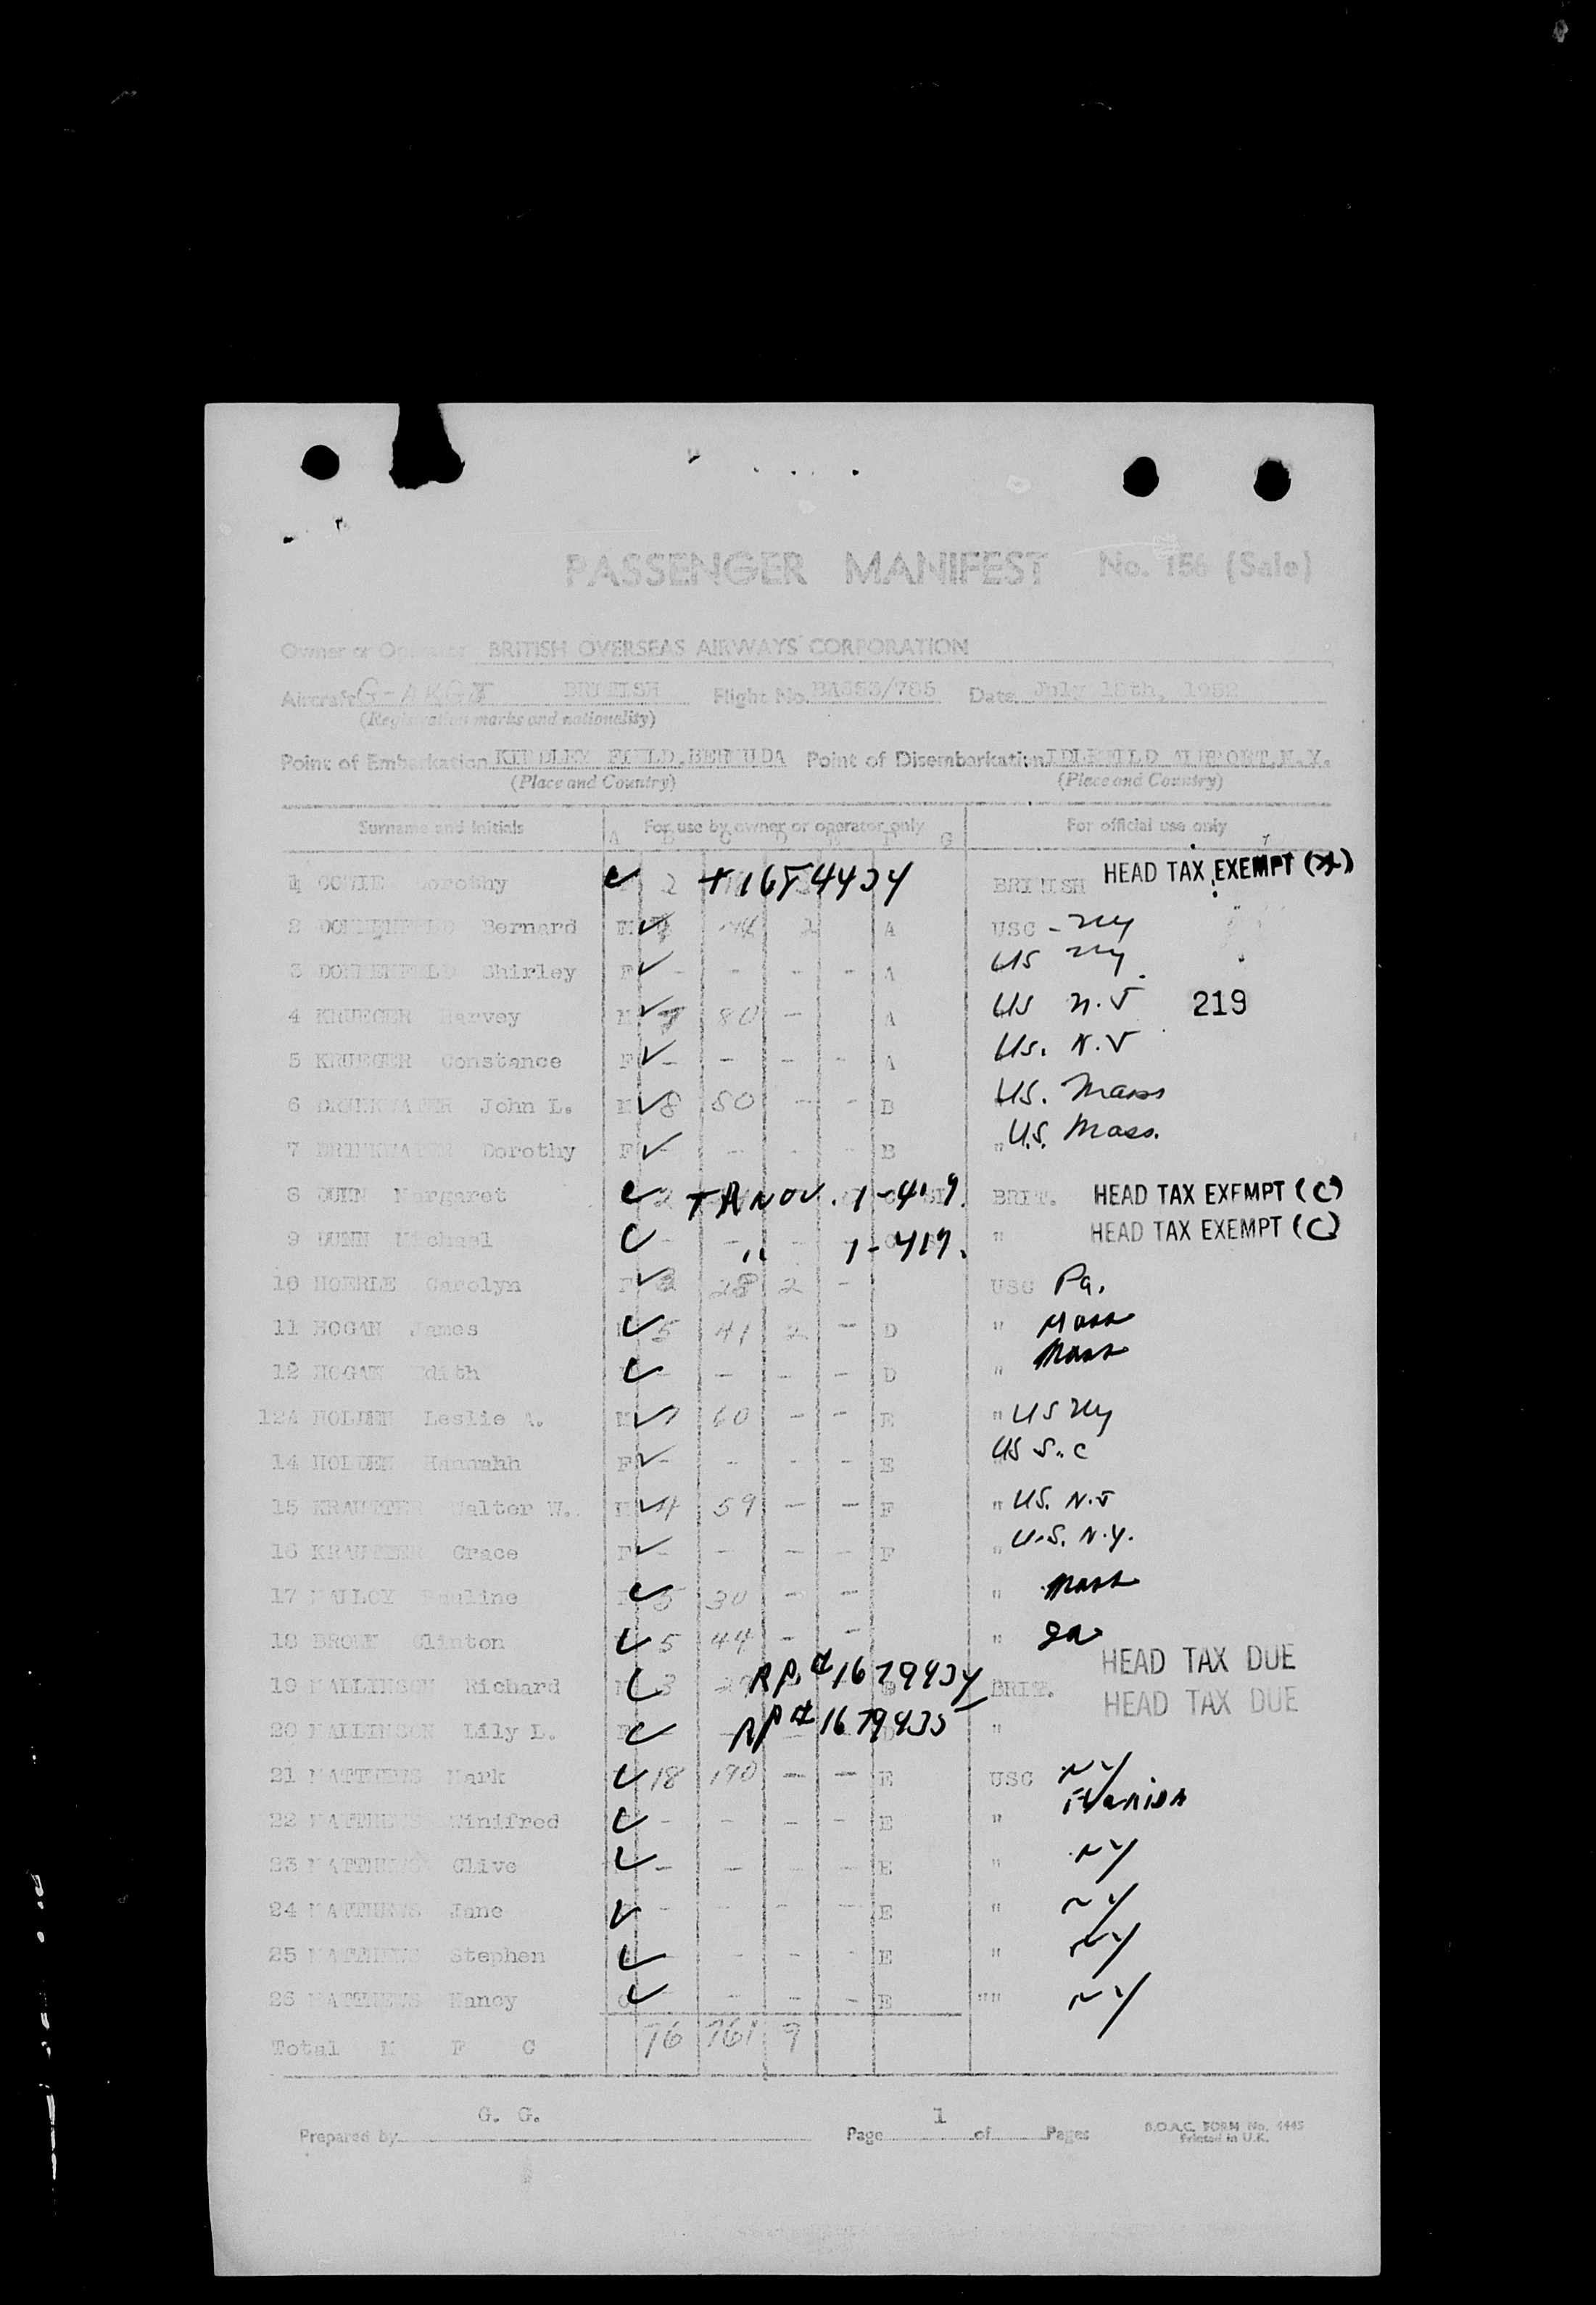 PASSENGER MANIFEST No. 156 (Sale)
Owner or Operator BRITISH OVERSEAS AIRWAYS CORPORATION
Aircraft BRITISH Flight No. Date July 18th, 1952
(Registration marks and nationality)
Point of Embarkation KINDLEY FIELD, BERMUDA Point of Disembarkation IDLEWILD AIRPORT, N.Y.
(Place and Country) (Place and Country)
Surname and Initials For use by owner or operator only For official use only
A B C D E F G
1 Dorothy 2 BRITISH HEAD TAX EXEMPT
2 Bernard M A USC - NY
3 Shirley F - - - - A US NY
4 KRUEGER Harvey M 7 80 - A US N.J 219
5 KRUEGER Constance F - - - - A US. N.J
6 DRINKWATER John L. M 8 80 - - B US. Mass
7 DRINKWATER Dorothy F - - - - B " U.S. Mass.
8 DUNN Margaret 1-419. BRIT. HEAD TAX EXEMPT (C)
9 DUNN Michael " 1-419. " HEAD TAX EXEMPT (C)
10 HOERLE Carolyn F 28 2 - USC Pa.
11 HOGAN James 5 41 2 - D " Mass
12 HOGAN Edith - - - - D " Mass
12A HOLDEN Leslie A. M 7 60 - - E " US NY
14 HOLDEN Hannahh F - - - - E US S.C
15 Walter W. M 4 59 - - F " US. N.J
16 Grace F - - - - F " U.S. N.Y.
17 MALLOY Pauline 5 30 - - " Mass
18 BROWN Clinton 5 44 - - " Ga
HEAD TAX DUE
19 MALLINSON Richard M 3 BRIT.
HEAD TAX DUE
20 MALLINSON Lily L. F "
21 MATTHEWS Mark 18 190 - - E USC NY
22 MATTHEWS Winifred - - - - E "
23 MATTHEWS Clive - - - - E " NY
24 MATTHEWS Jane - - - - E " NY
25 MATTHEWS Stephen - - - E " NY
26 MATTHEWS Nancy C - - - - E "" NY
Total M F C 76 761 9
Prepared by G. G. Page 1 of Pages B.O.A.C. FORM No. 4445
Printed in U.K.